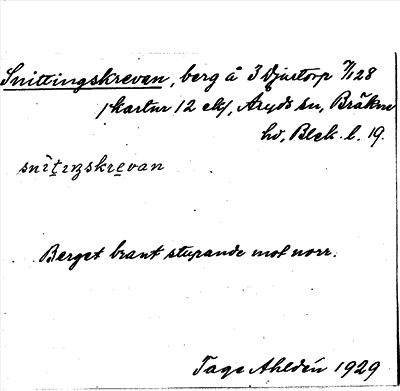 Snittingskrevan, berg å 3 Djurtorp 7/128
kartur 12 ey, Aryds sn, Bräkne
hd, Blek. l. 19.
snìt̠ɪŋskre̠van
Berget brant stupande mot norr.
Tage Ahldén 1929